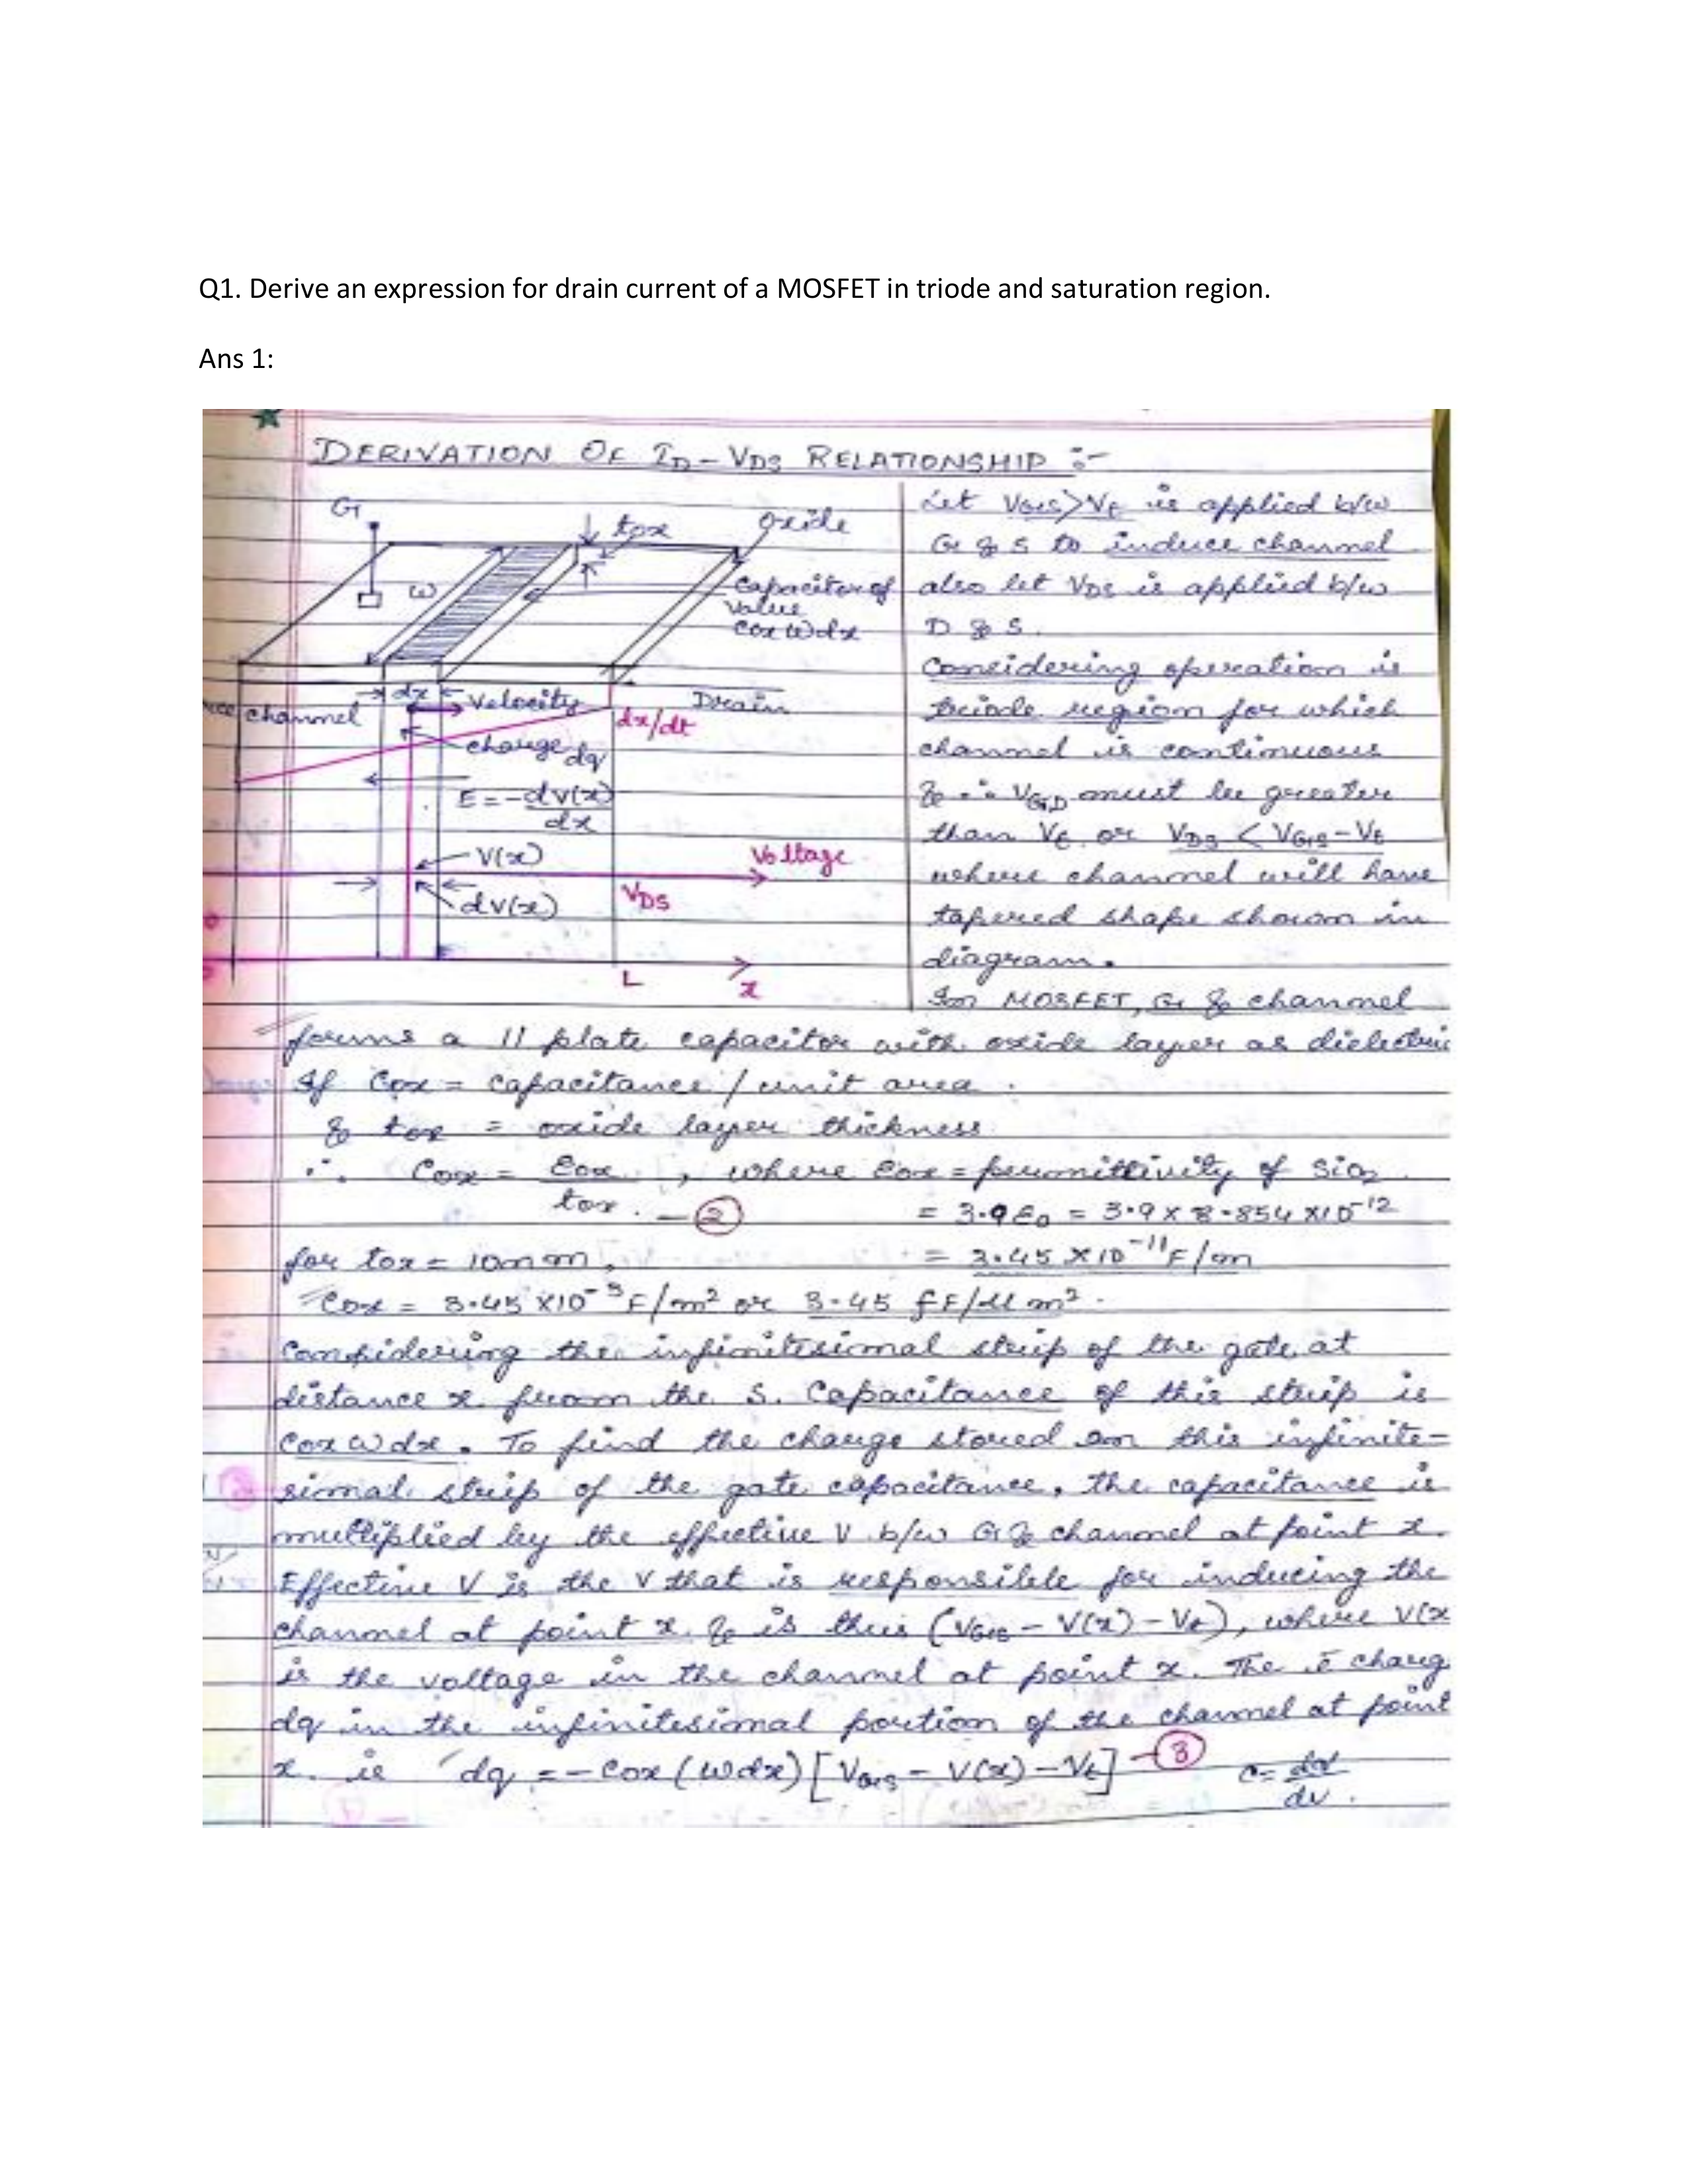 Q1. Derive an expression for drain current of a MOSFET in triode and saturation region.
Ans 1:
DERIVATION OF ID-VDS RELATIONSHIP :-
G
tox
oxide
ω
Capacitor of
value
Cox W dx
dx
Velocity
Drain
channel
dx/dt
charge dq
E = -dV(x)/dx
V(x)
Voltage
dv(x)
VDS
L
x
Let VGS>Vt is applied b/w
G & S to induce channel
also let VDS is applied b/w
D & S.
Considering operation is
triode region for which
channel is continuous
& ∴ VGD must be greater
than Vt or VDS < VGS-Vt
where channel will have
tapered shape shown in
diagram.
In MOSFET, G & channel
forms a 11 plate capacitor with oxide layer as dielectric
If Cox = capacitance / unit area.
& tox = oxide layer thickness
∴ Cox = Eox/tox, where Eox = permittivity of SiO2
— ② = 3.9 E0 = 3.9 x 8.854 x10^-12
for tox = 10nm, = 3.45 x10^-11 F/m
Cox = 3.45 x10^-3 F/m² or 3.45 fF/µm².
Considering the infinitesimal strip of the gate at
distance x from the S. Capacitance of this strip is
Cox W dx. To find the charge stored on this infinite-
simal strip of the gate capacitance, the capacitance is
multiplied by the effective V b/w G & channel at point x.
Effective V is the V that is responsible for inducing the
channel at point x & is thus (VGS - V(x) - Vt), where V(x
is the voltage in the channel at point x. The ē charg
dq in the infinitesimal portion of the channel at point
x is dq = -Cox (W dx) [VGS - V(x) - Vt] — ③ C = dq/dv.